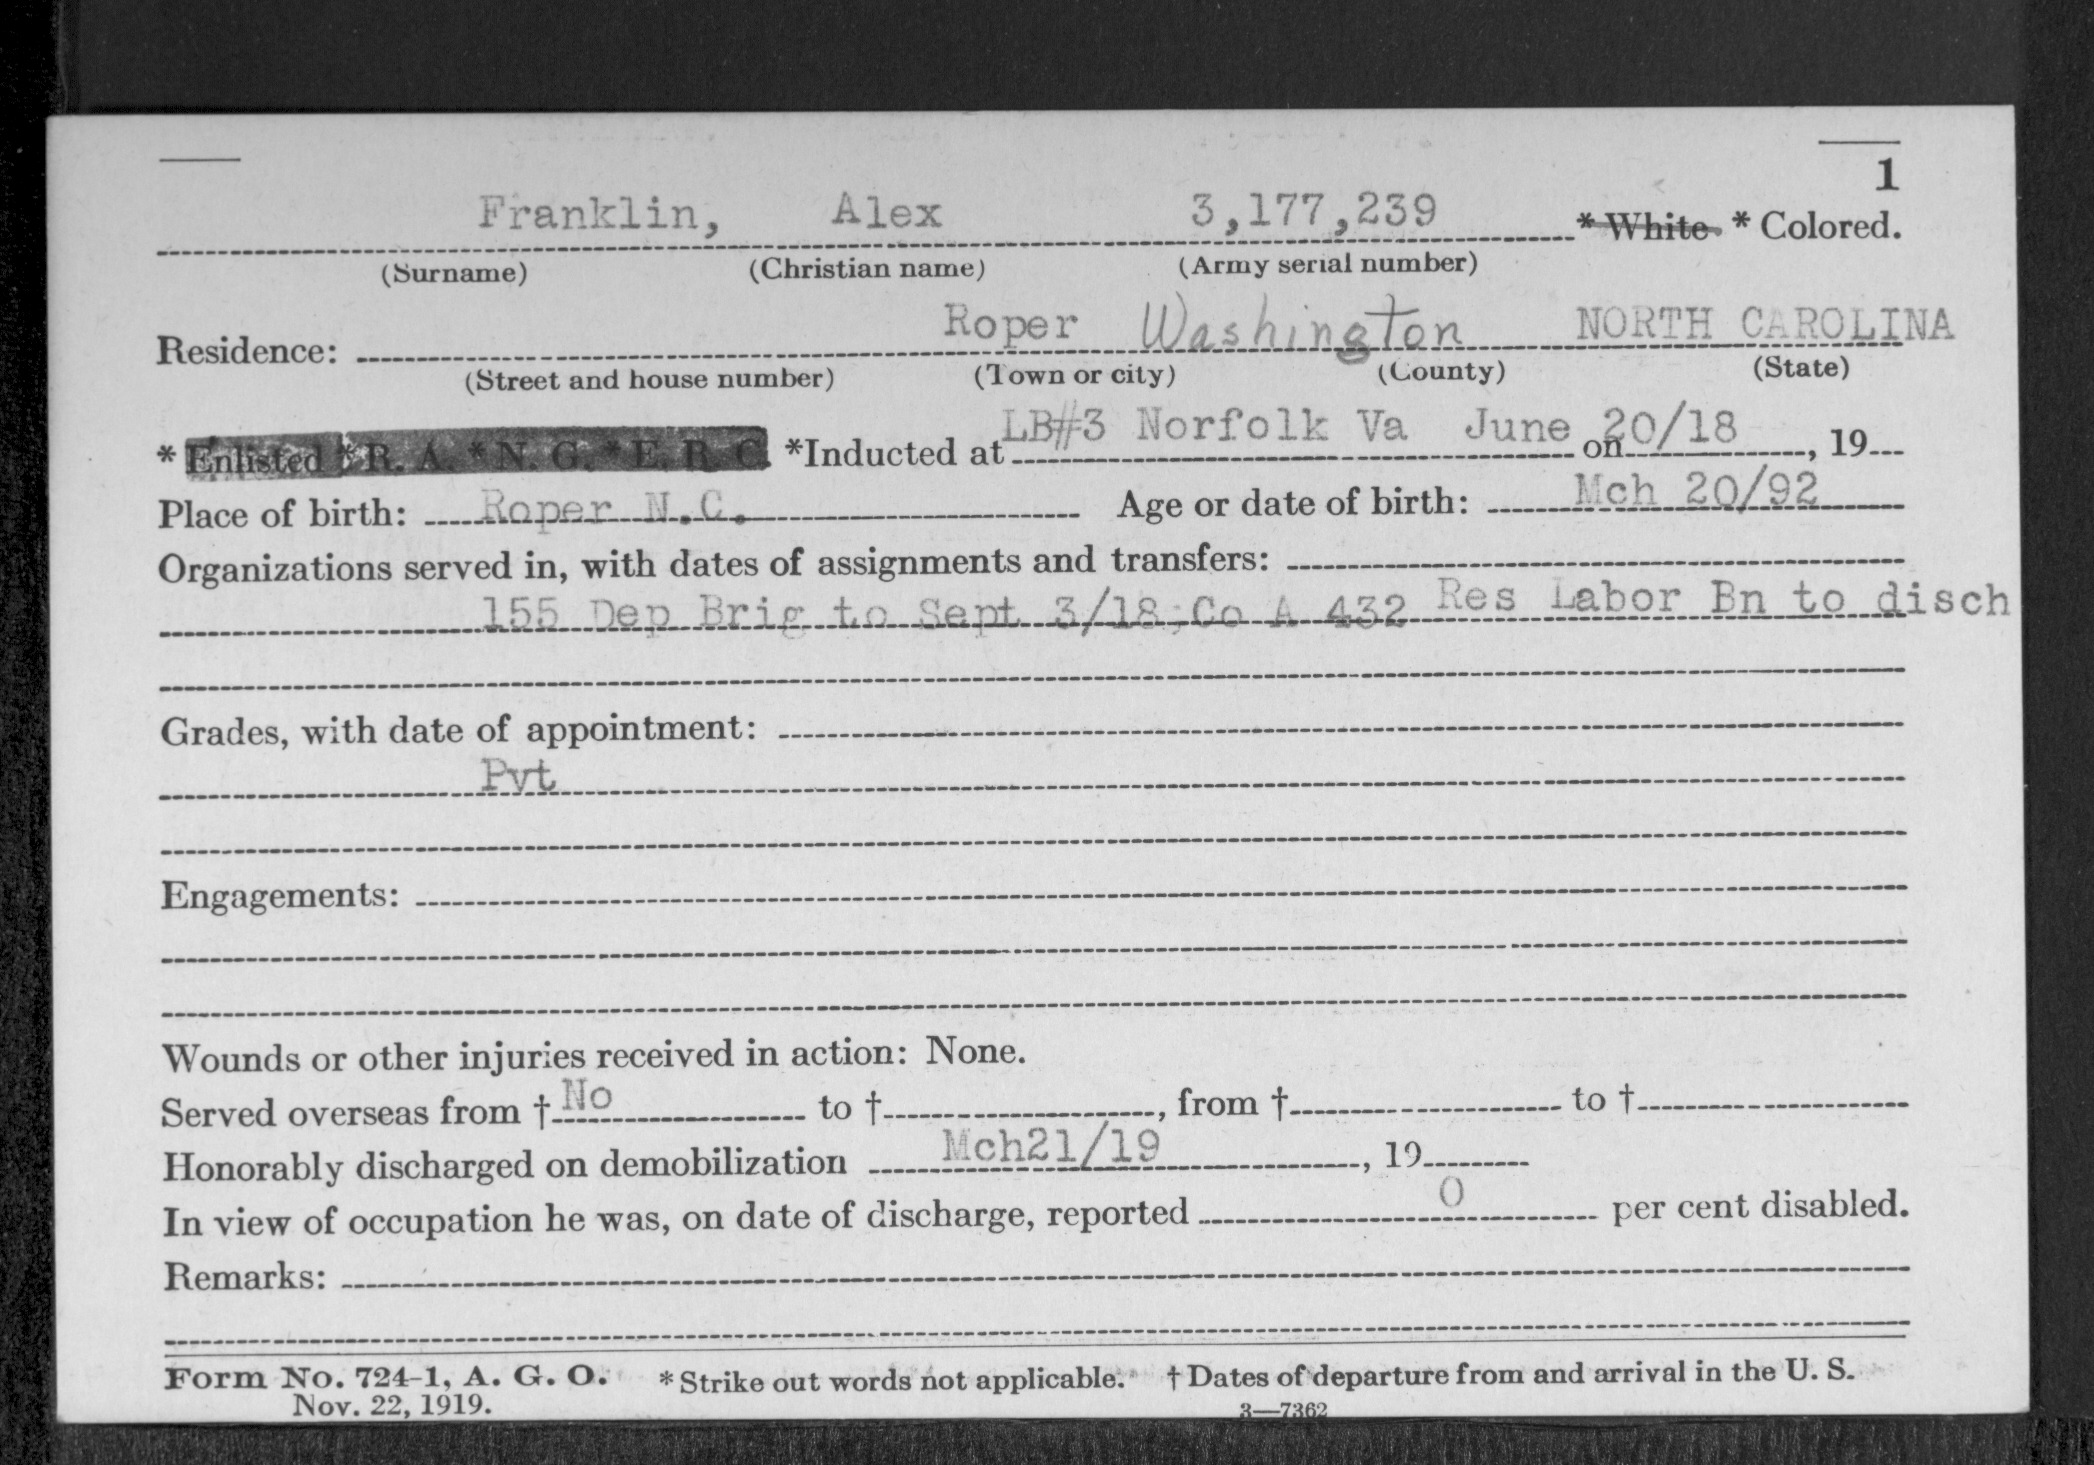 1
Franklin, Alex 3,177,239 * White * Colored.
(Surname) (Christian name) (Army serial number)
Residence: Roper Washington NORTH CAROLINA
(Street and house number) (Town or city) (County) (State)
* Enlisted * R. A. * N. G. * E. R. C. *Inducted at LB#3 Norfolk Va June on 20/18, 19
Place of birth: Roper N.C. Age or date of birth: Mch 20/92
Organizations served in, with dates of assignments and transfers:
155 Dep Brig to Sept 3/18;Co A 432 Res Labor Bn to disch
Grades, with date of appointment:
Pvt
Engagements:
Wounds or other injuries received in action: None.
Served overseas from † No to †, from † to †
Honorably discharged on demobilization Mch21/19, 19
In view of occupation he was, on date of discharge, reported 0 per cent disabled.
Remarks:
Form No. 724-1, A. G. O. * Strike out words not applicable. † Dates of departure from and arrival in the U. S.
Nov. 22, 1919. 3—7362